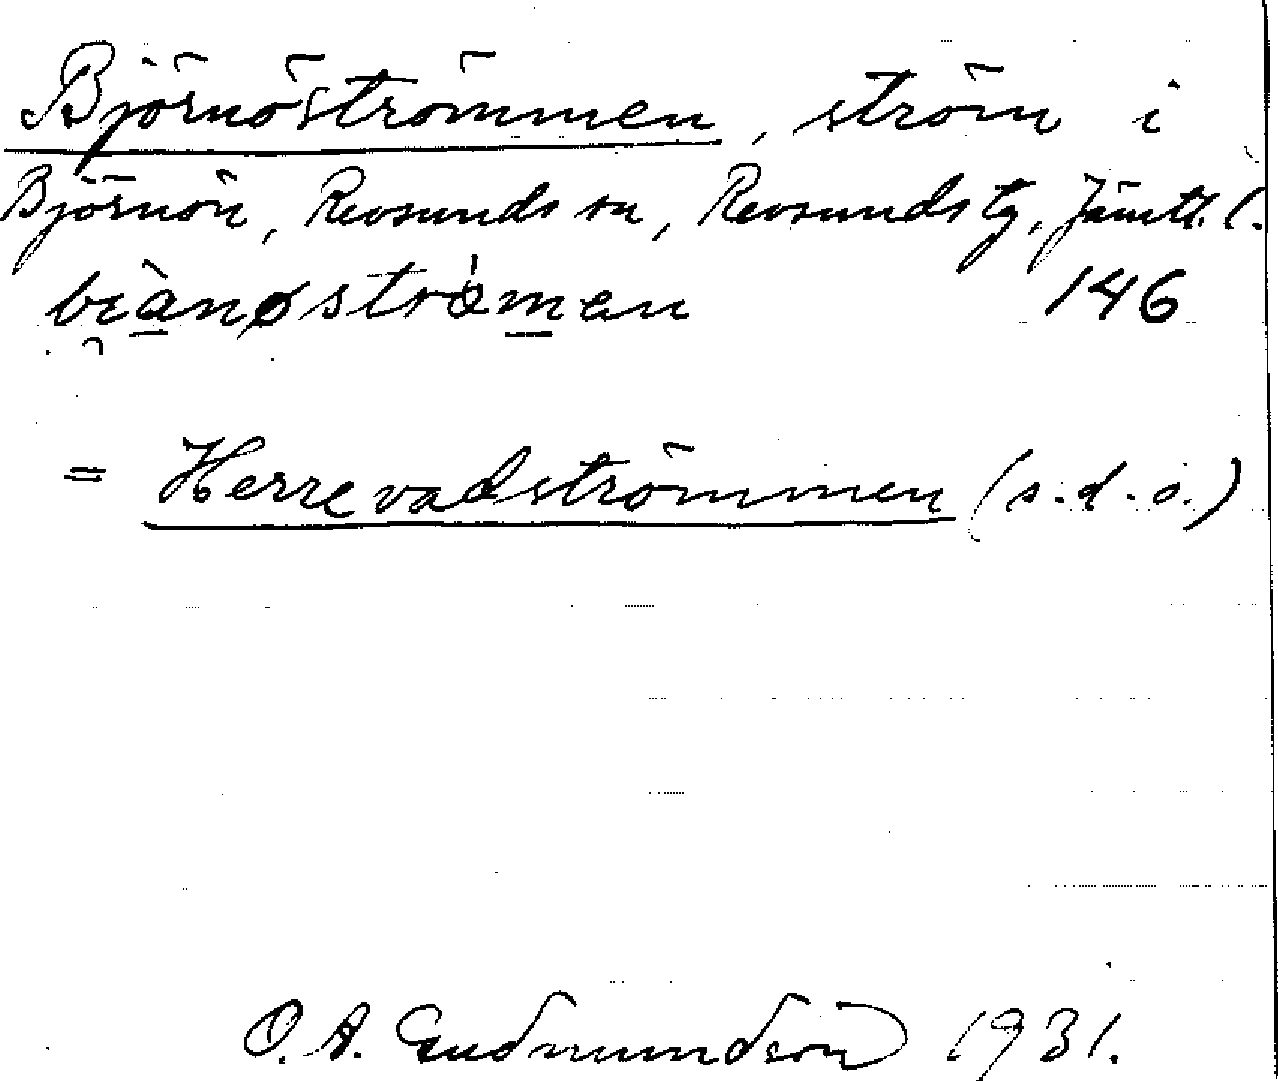 Björnöströmmen, ström i
Björnön, Revsunds sn, Revsunds tg, Jämtl. l.
146
= Herrevadströmmen (s.d.o.)
O. A. Gudmundson 1931.